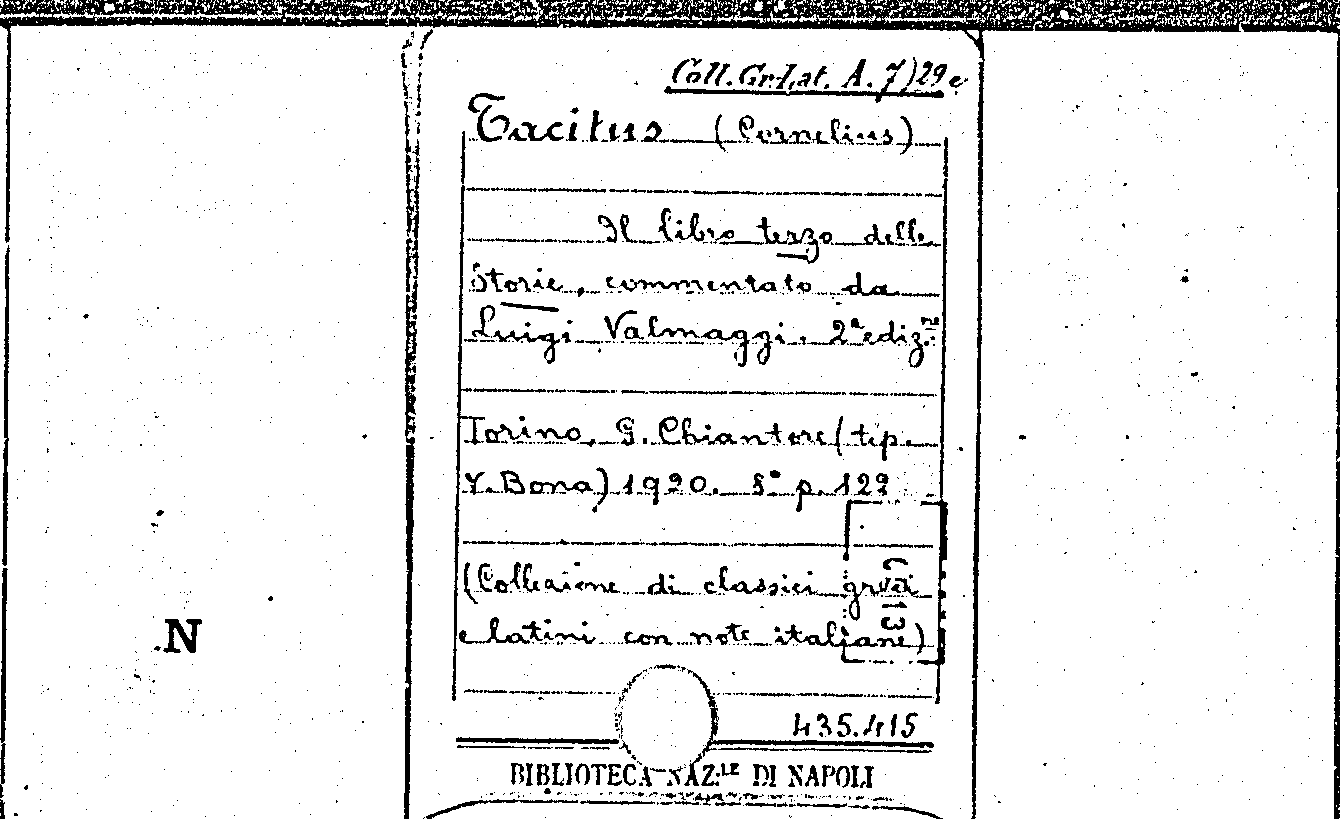 Coll. Gr-Lat. A. 7)29
Tacitus (Cornelius)
Il libro terzo delle
Storie, commentato da
Luigi Valmaggi. 2ª ediz.ne
Torino, G. Chiantore (tip.
V. Bona) 1920. 8° p. 122
(Collezione di classici greci
e latini con note italiane)
N
435.415
BIBLIOTECA NAZ:LE DI NAPOLI